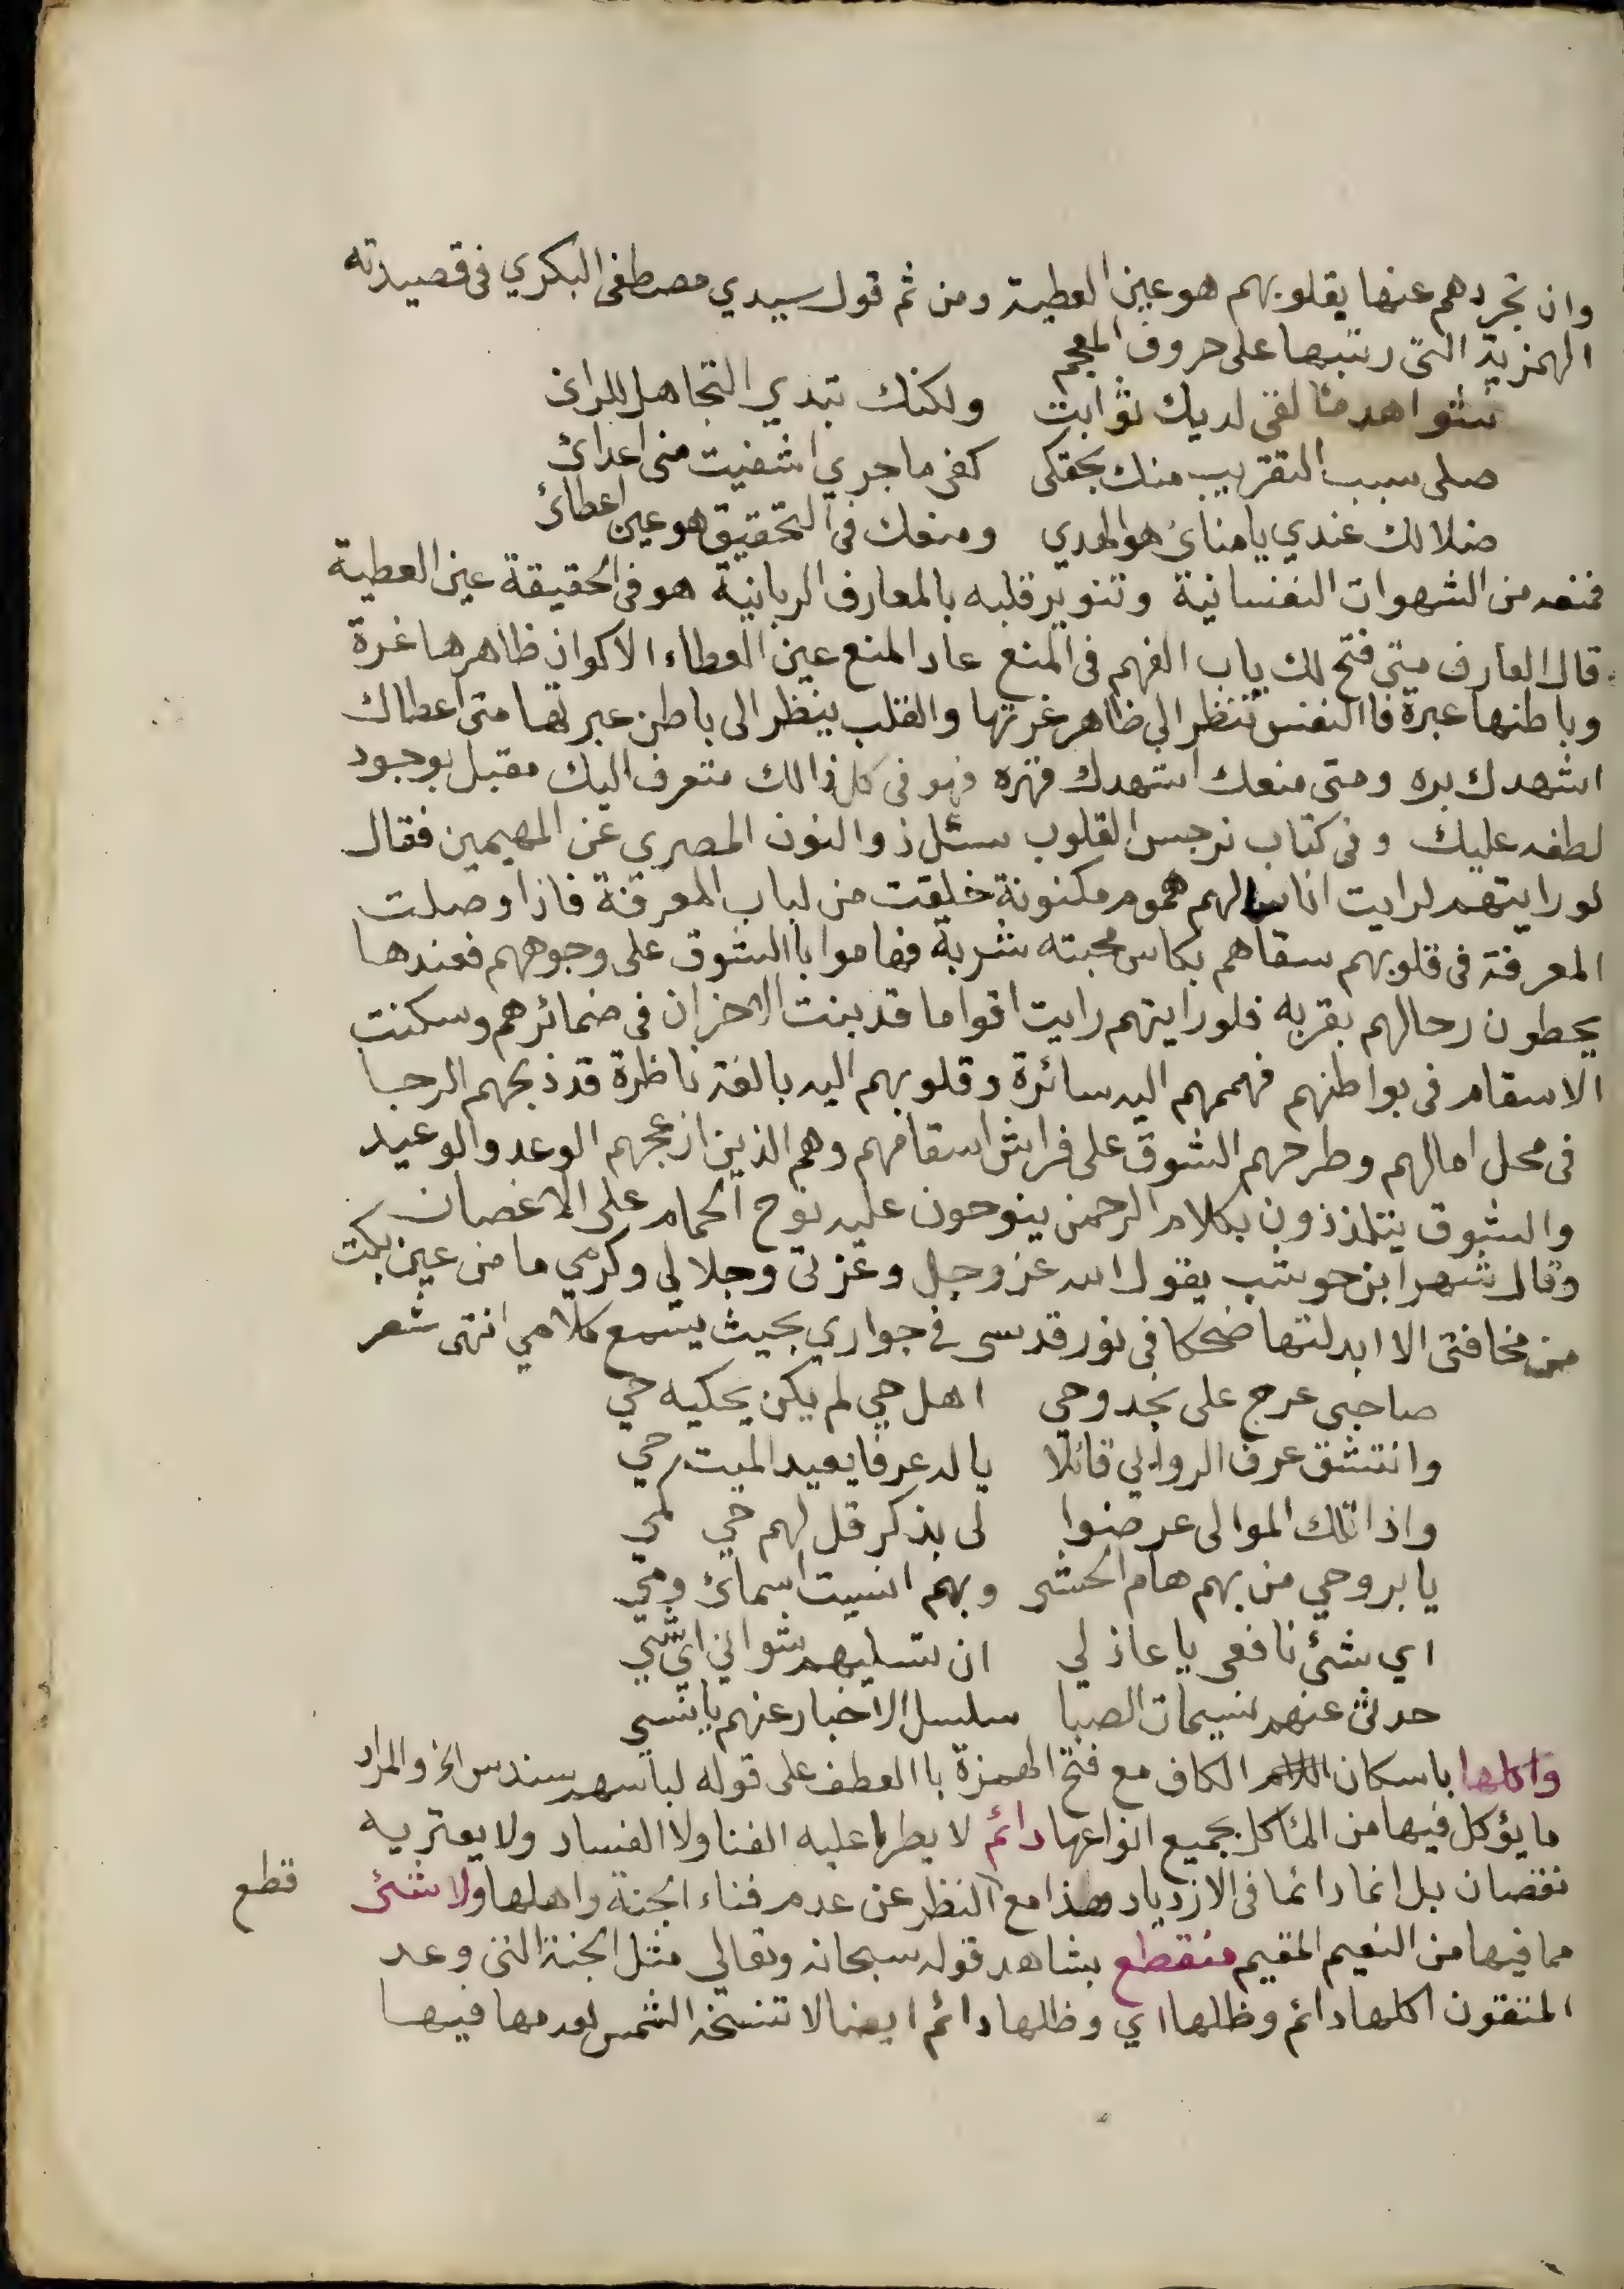 وان تجردهم عنها بقلوبهم هو عين العطية ومن ثم قول سيدي مصطفى البكري في قصيدته
الهمزية التى رتبها على حروف المعجم
شواهدنا لفي لديك ثوابت ولكنك تبدي التجاهل للرائ
صلى سبب التقريب منك بحقكى كفى ما جري اشفيت منى اعدائ
ضلالك عندي يا مناي هو الهدي ومنعك في التحقيق هو عين اعطائ
فمنعه من الشهوات النفسانية وتنوير قلبه بالمعارف الربانية هو في الحقيقة عين العطية
قال العارف متى فتح لك باب الفهم فى المنع عاد المنع عين العطاء الاكوان ظاهرها غرة
وباطنها عبرة فا النفس تنظر الي ظاهر غرتها والقلب ينظر الى باطن عبرتها متى اعطاك
اشهدك بره ومتى منعك اشهدك قهره فهو فى كل ذالك متعرف اليك مقبل بوجود
لطفه عليك وفى كتاب نرجس القلوب سئل ذو النون المصري عن المهيمين فقال
لو رايتهم لرايت اناسا لهم هموم مكنونة خلقت من لباب المعرفة فاذا وصلت
المعرفة فى قلوبهم سقاهم بكاس محبته شربة فهاموا باالشوق على وجوههم فعندها
يحطون رحالهم بقربه فلو رايتهم رايت اقواما قد بنت الاحزان فى ضمائرهم وسكنت
الاسقام فى بواطنهم فهممهم اليه سائرة وقلوبهم اليه بالغة ناظرة قد ذبحهم الرجا
فى محل امالهم وطرحهم الشوق على فراش اسقامهم وهم الذين ازعجهم الوعد والوعيد
والشوق يتلذذون بكلام الرحمن ينوحون عليه نوح الحمام على الاغصان
وقال شهر ابن حوشب يقول الله عز وجل وعزتى وجلالي وكرمي ما من عين بكت
من مخافتى الا ابدلتها ضحكا فى نور قدسى فى جواري بحيث يسمع كلامي انتهى شعر
صاحبى عرج على نجد وحي اهل حي لم يكن يحكيه حي
وانتشق عرف الروابي قائلا يا له عرفا يعيد الميت حي
واذا تلك الموالى عرضوا لى بذكر قل لهم حي لحي
يا بروحي من بهم هام الحشى وبهم انسيت اسمائ ومي
اي شئ نافعى يا عاذلي ان تسليهم شواني اي شي
حدثى عنهم نسيمات الصبا سلسل الاخبار عنهم يا نسي
واكلها باسكان الكاف مع فتح الهمزة باالعطف على قوله لباسهم سندس الخ والمراد
ما يؤكل فيها من المئاكل بجميع انواعها دائم لا يطرا عليه الفنا ولا الفساد ولا يعتريه
نقصان بل انما دائما فى الازدياد هذا مع النظر عن عدم فناء الجنة واهلها ولا شئ
قطع
مما فيها من النعيم المقيم منقطع بشاهد قوله سبحانه وتعالي مثل الجنة التى وعد
المتقون اكلها دائم وظلها اي وظلها دائم ايضا لا تنسخه الشمس لعدمها فيها